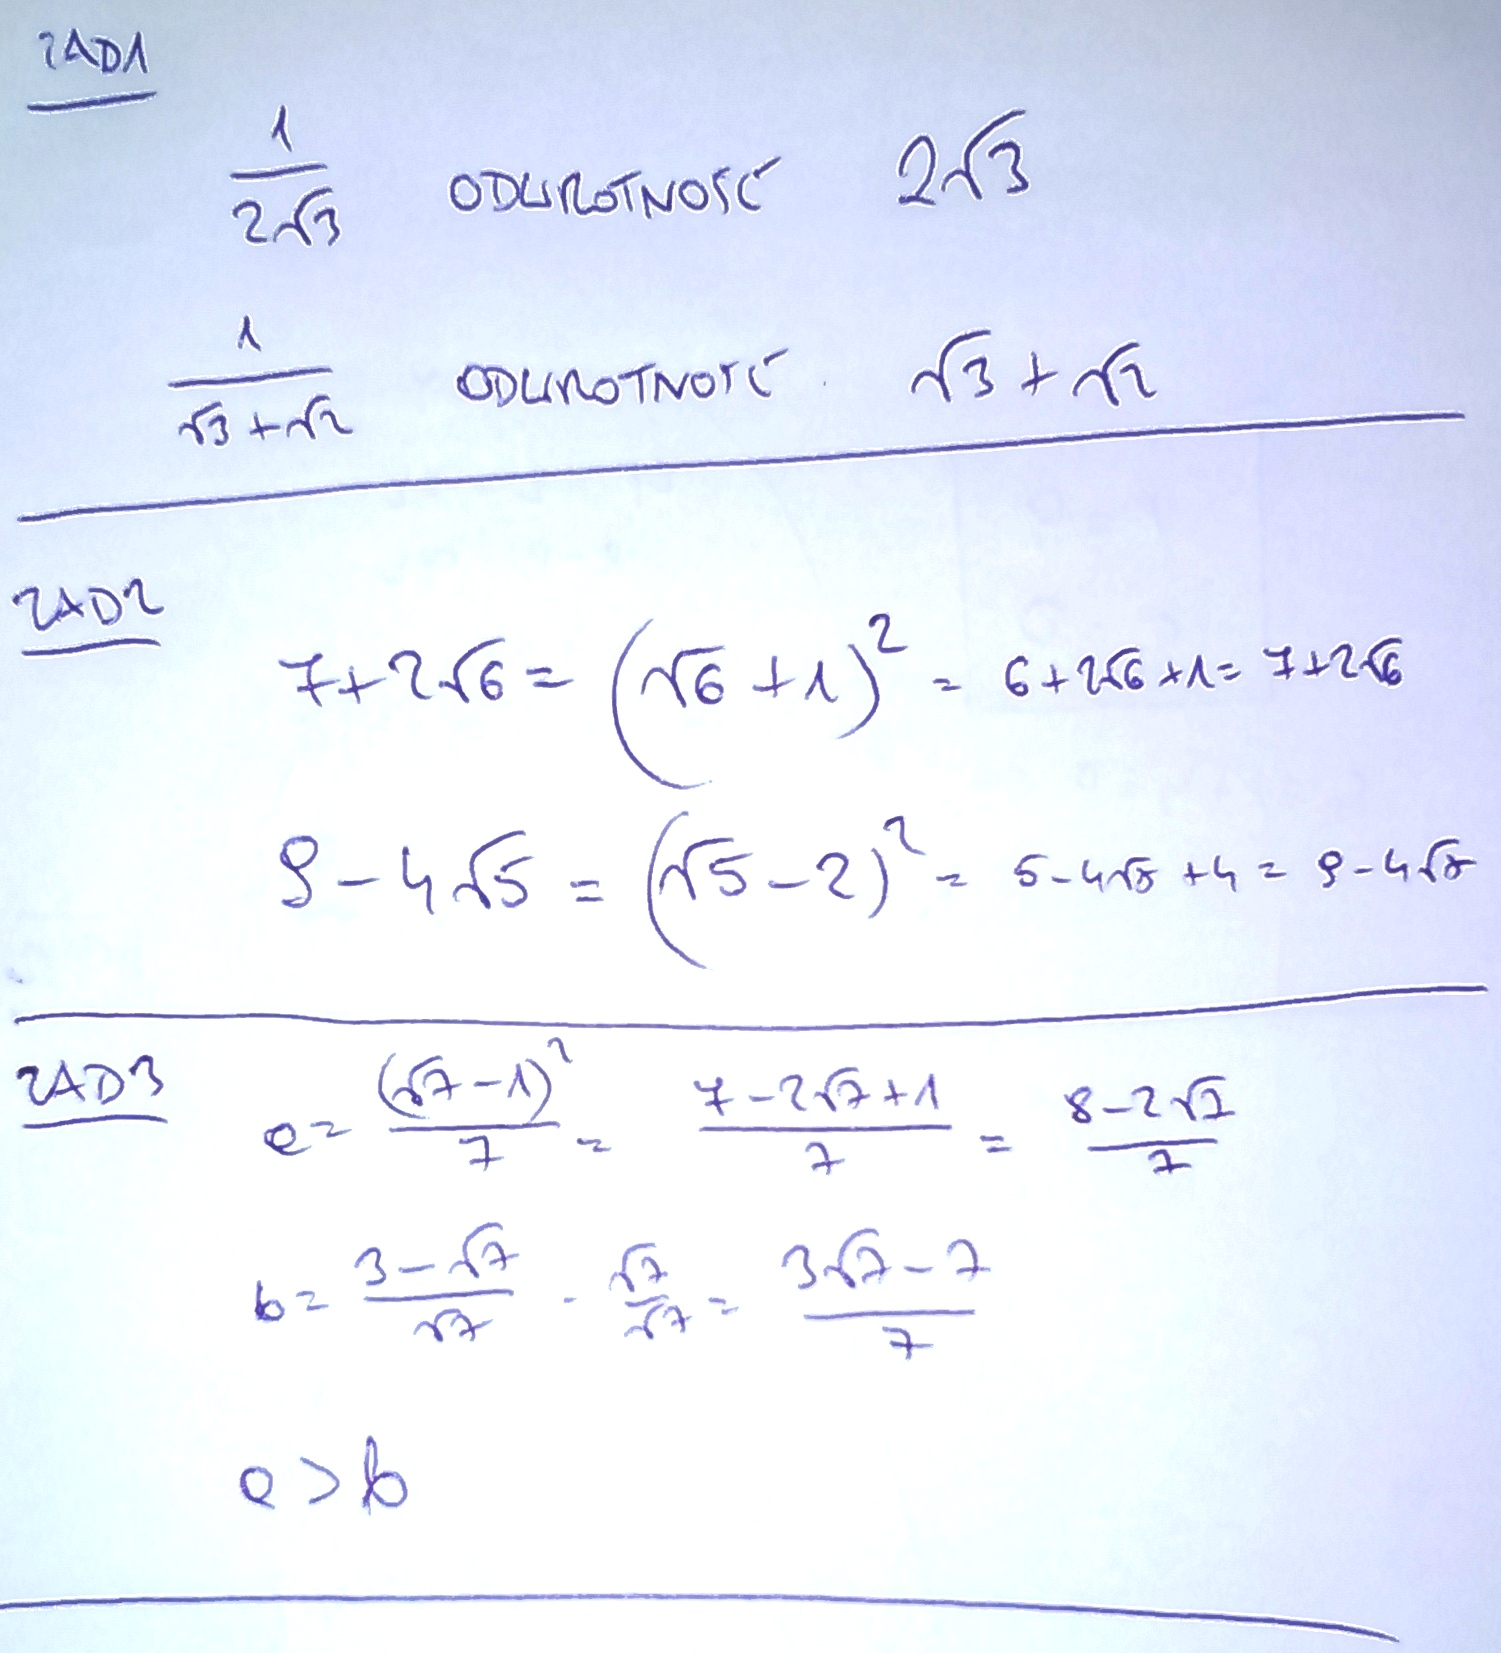 ZAD1
1/(2√3) ODWROTNOŚĆ 2√3
1/(√3+√2) ODWROTNOŚĆ √3+√2
ZAD2
7+2√6 = (√6+1)² = 6+2√6+1 = 7+2√6
9-4√5 = (√5-2)² = 5-4√5+4 = 9-4√5
ZAD3
a = (√7-1)²/7 = (7-2√7+1)/7 = (8-2√7)/7
b = (3-√7)/√7 · √7/√7 = (3√7-7)/7
a > b